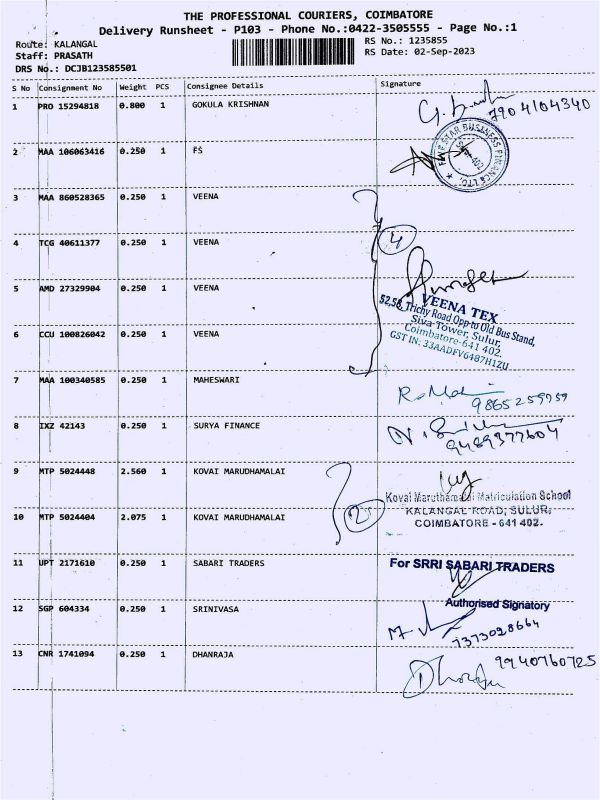 THE PROFESSIONAL COURIERS, COIMBATORE
Delivery Runsheet - P103 - Phone No.:0422-3505555 - Page No.:1
Route: KALANGAL
RS No.: 1235855
Staff: PRASATH
RS Date: 02-Sep-2023
DRS No.: DCJB123585501
S No Consignment No Weight PCS Consignee Details Signature
1 PRO 15294818 0.800 1 GOKULA KRISHNAN
7904104340
2 MAA 106063416 0.250 1 FS
FIVE STAR BUSINESS FINANCE LTD.
3 MAA 860528365 0.250 1 VEENA
4 TCG 40611377 0.250 1 VEENA
4
5 AMD 27329904 0.250 1 VEENA
VEENA TEX
52,58, Trichy Road Opp to Old Bus Stand,
Siva Tower, Sulur,
Coimbatore-641 402.
GST IN: 33AADFV6487H1ZU
6 CCU 100826042 0.250 1 VEENA
7 MAA 100340585 0.250 1 MAHESWARI
9865259759
8 IXZ 42143 0.250 1 SURYA FINANCE
9489377604
9 MTP 5024448 2.560 1 KOVAI MARUDHAMALAI
Kovai Maruthamalai Matriculation School
KALANGAL ROAD, SULUR,
COIMBATORE - 641 402.
10 MTP 5024404 2.075 1 KOVAI MARUDHAMALAI
2
11 UPT 2171610 0.250 1 SABARI TRADERS
For SRRI SABARI TRADERS
Authorised Signatory
12 SGP 604334 0.250 1 SRINIVASA
7373028664
13 CNR 1741094 0.250 1 DHANRAJA
9940760725